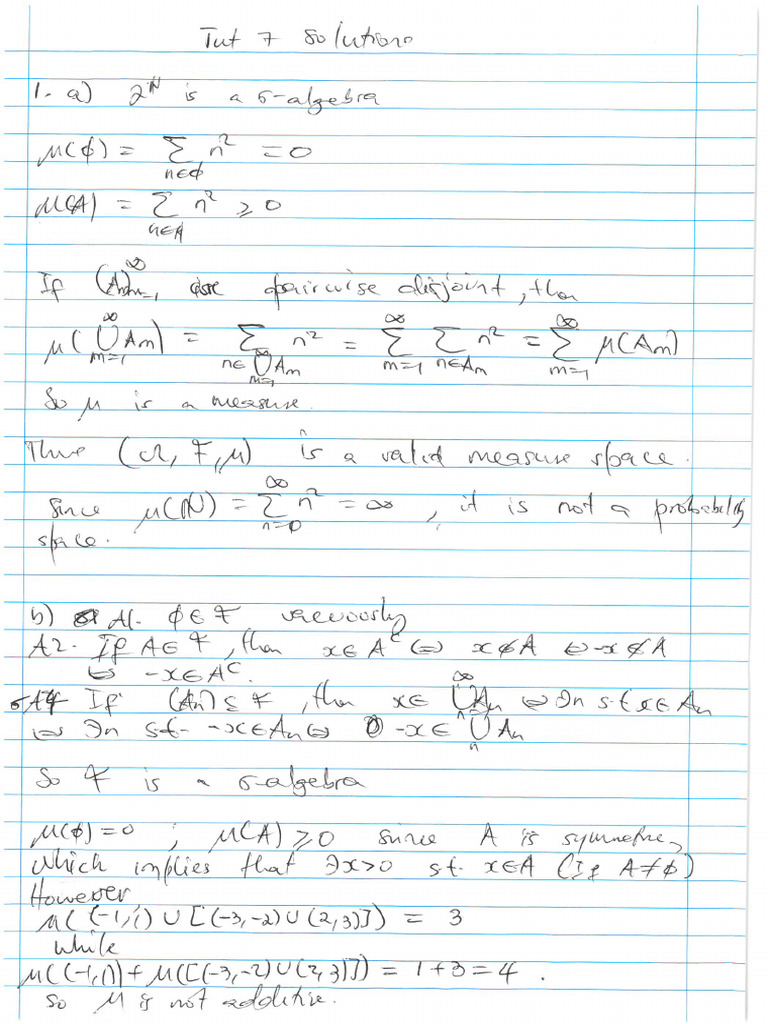 Tut 7 Solutions
1. a) 2^ℕ is a σ-algebra
μ(∅) = Σ_{n∈∅} n² = 0
μ(A) = Σ_{n∈A} n² ≥ 0
If (Am)_{m=1}^∞ are pairwise disjoint, then
μ(⋃_{m=1}^∞ Am) = Σ_{n∈⋃_{m=1}^∞ Am} n² = Σ_{m=1}^∞ Σ_{n∈Am} n² = Σ_{m=1}^∞ μ(Am)
So μ is a measure.
Thus (Ω, F, μ) is a valid measure space.
Since μ(ℕ) = Σ_{n=0}^∞ n² = ∞, it is not a probability
space.
b) A1. ∅ ∈ F vacuously
A2. If A ∈ F, then x ∈ A^c ⇔ x ∉ A ⇔ -x ∉ A
⇔ -x ∈ A^c.
σA4 If (An) ⊆ F, then x ∈ ⋃_n^∞ An ⇔ ∃n s.t x ∈ An
⇔ ∃n s.t. -x ∈ An ⇔ -x ∈ ⋃_n An
So F is a σ-algebra
μ(∅) = 0 ; μ(A) ≥ 0 since A is symmetric,
which implies that ∃x>0 s.t. x∈A (If A≠∅)
However,
μ((-1,1) ∪ [(-3,-2) ∪ (2,3)]) = 3
while
μ((-1,1)) + μ([(-3,-2) ∪ (2,3)]) = 1+3 = 4.
So μ is not additive.